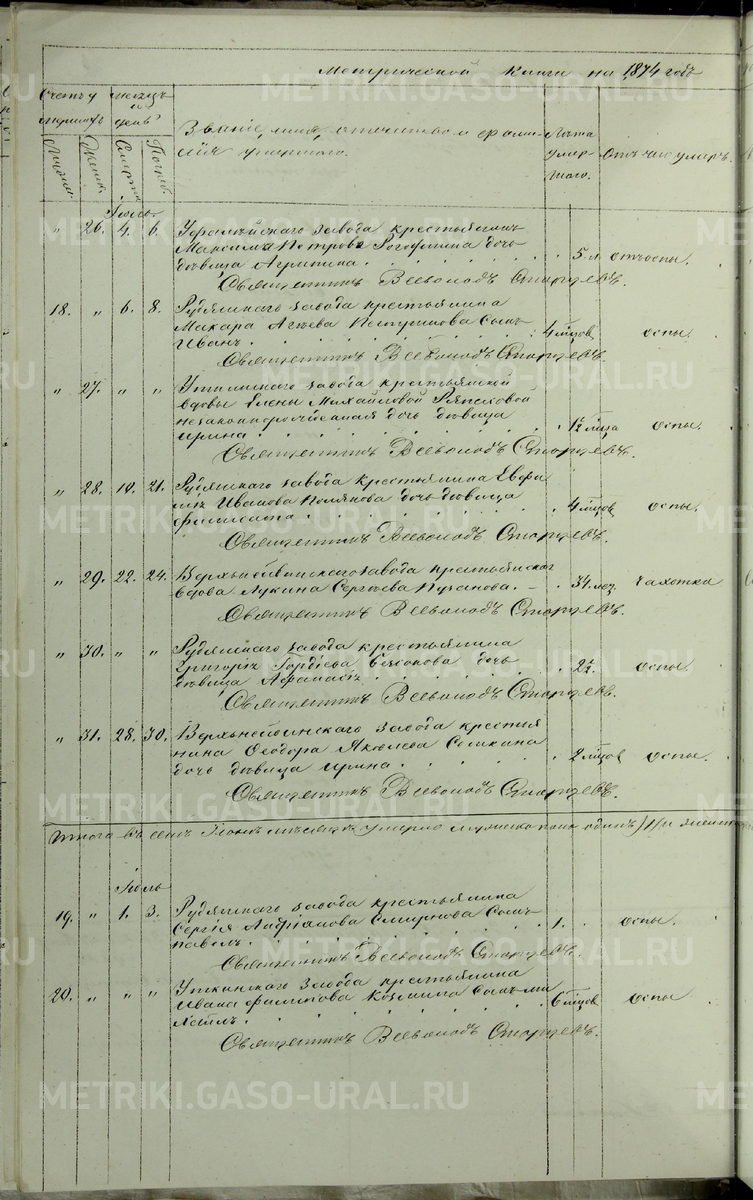 Метрической Книги на 1874 годъ
Счетъ умершихъ Мѣсяцъ и день
Мужск. Женск. Смерти Погреб.
Званіе, имя, отчество и фамилія умершаго.
Лѣта умершаго.
Отъ чего умеръ.
Іюнь
" 26. 4. 6. завода крестьянина
Максима Петрова дочь
дѣвица Агрипина. 5 л отъ оспы.
Священникъ Всеволодъ Старцевъ.
18. " 6. 8. Рудянскаго завода крестьянина
Макара Сынъ
Иванъ. 4 мѣсцов оспы.
Священникъ Всеволодъ Старцевъ.
" 27. " " Уткинскаго завода крестьянской
вдовы Елены Михайловой
незаконнорожденная дочь дѣвица
Ирина. 1½ мѣсца оспы.
Священникъ Всеволодъ Старцевъ.
" 28. 19. 21. Рудянскаго завода крестьянина
Иванова Полякова дочь дѣвица
4 мѣсцов оспы.
Священникъ Всеволодъ Старцевъ.
" 29. 22. 24. Верхнейвинскаго завода крестьянская
вдова Лукина Сергѣева 34. чахотка
Священникъ Всеволодъ Старцевъ.
" 30. " " Рудянскаго завода крестьянина
Григорія Гордѣева дочь
дѣвица 2½. оспы.
Священникъ Всеволодъ Старцевъ.
" 31. 28. 30. Верхнейвинскаго завода крестья
нина Ѳеодора Яковлева
дочь дѣвица Ирина. 2 мѣсцов оспы.
Священникъ Всеволодъ Старцевъ.
Итого въ семъ Іюнѣ мѣсяцѣ умерло мужеска пола одинъ /1/ и женска
Іюль
19. " 1. 3. Рудянскаго завода крестьянина
Сергія Андріанова Смирнова Сынъ
Павелъ. 1. оспы.
Священникъ Всеволодъ Старцевъ.
20. " " " Уткинскаго завода крестьянина
Ивана Филипова Козмина Сынъ Ми
6 мѣсцов оспы
Священникъ Всеволодъ Старцевъ.
METRIKI.GASO-URAL.RU